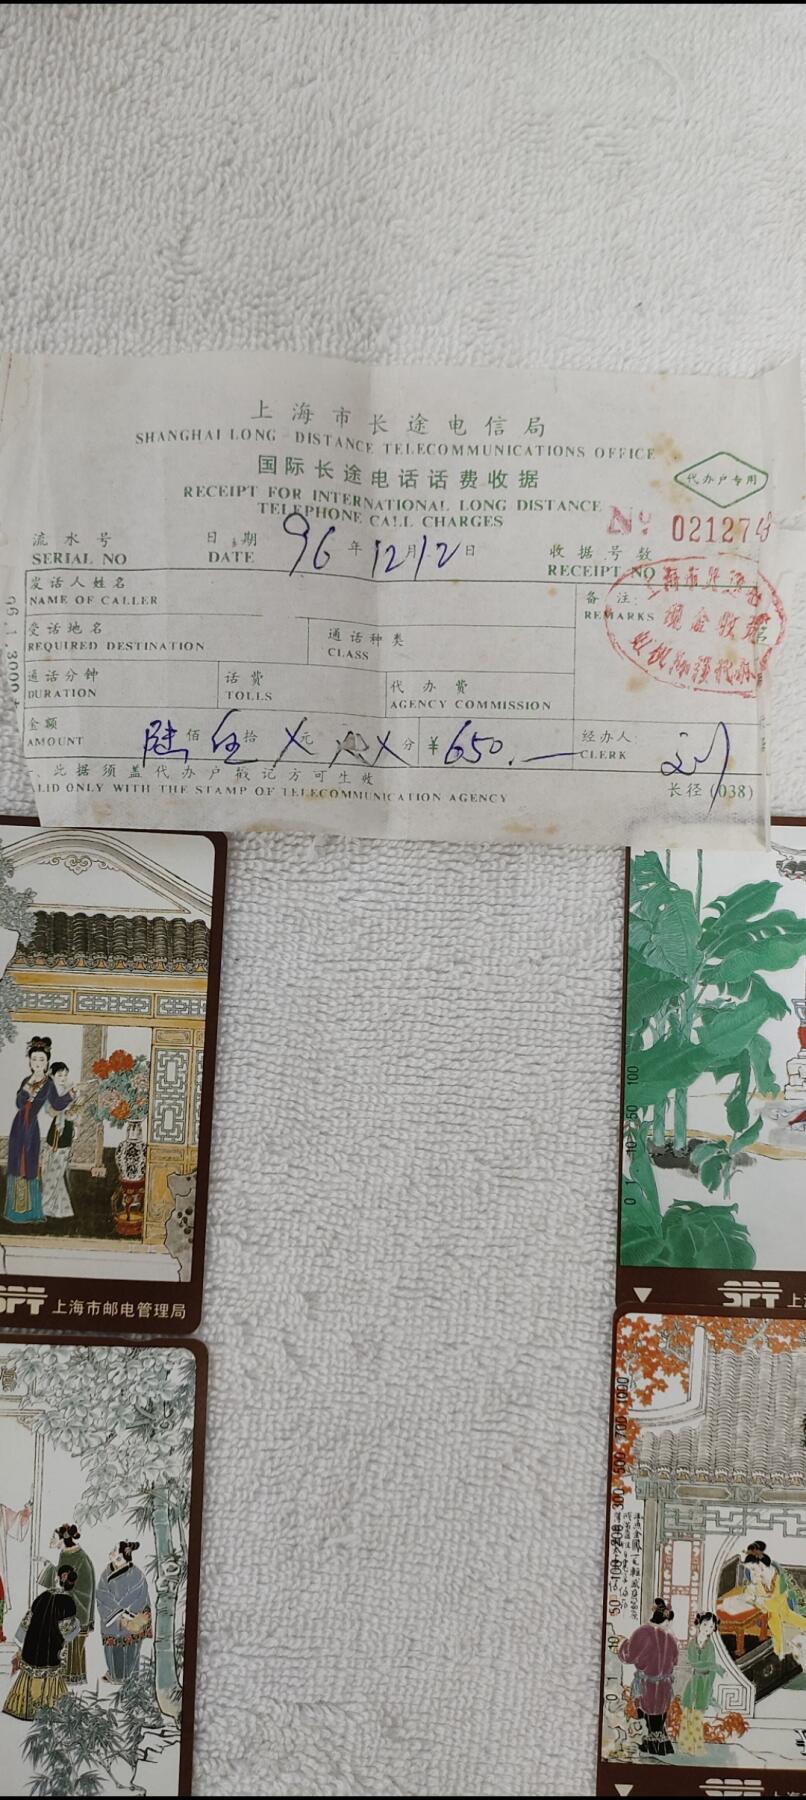 上海市长途电信局
SHANGHAI LONG-DISTANCE TELECOMMUNICATIONS OFFICE
国际长途电话话费收据
代办户专用
RECEIPT FOR INTERNATIONAL LONG DISTANCE
TELEPHONE CALL CHARGES
流水号 日期 96年12月12日 收据号数 Nº 021274
SERIAL NO DATE RECEIPT NO
发话人姓名 备注:
NAME OF CALLER REMARKS
受话地名 通话种类
REQUIRED DESTINATION CLASS
现金收
通话分钟 话费 代办费
DURATION TOLLS AGENCY COMMISSION
金额 陆佰伍拾X元 X分 ¥650.— 经办人: 刘
AMOUNT CLERK
此据须盖代办户戳记方可生效
LID ONLY WITH THE STAMP OF TELECOMMUNICATION AGENCY
长径(038)
SPT 上海市邮电管理局
0 1 10 50 100
SPT 上
0 1 10 50 100 200 300 500 700 1000